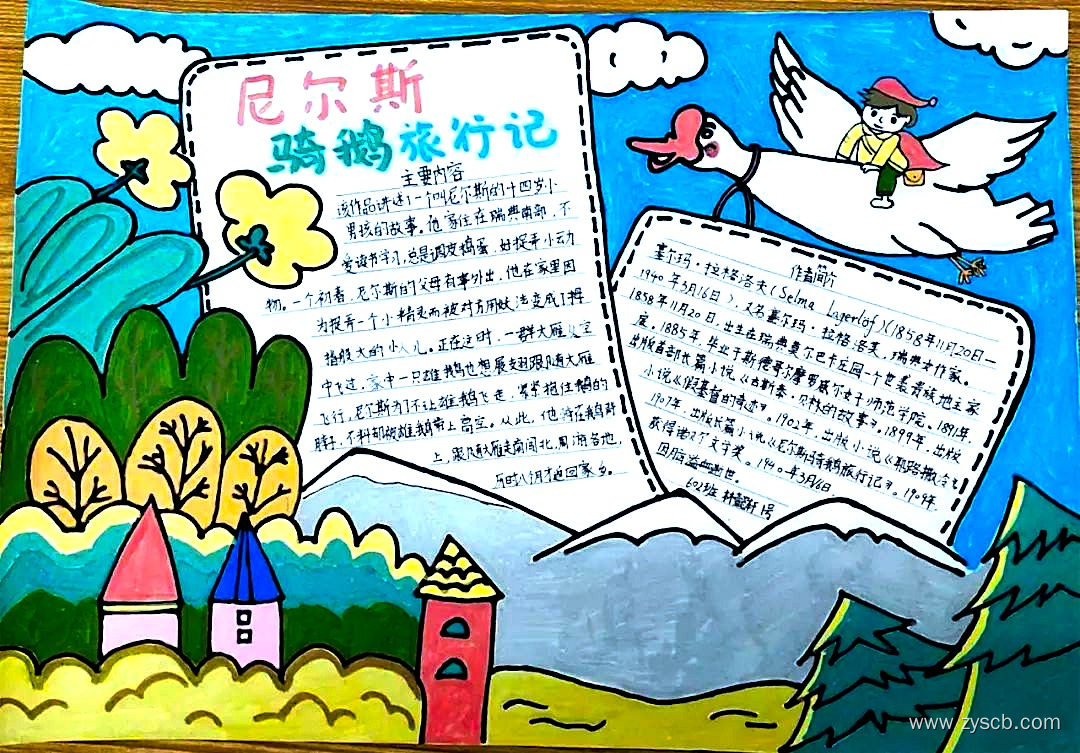 尼尔斯
骑鹅旅行记
主要内容
该作品讲述了一个叫尼尔斯的十四岁小
男孩的故事。他家住在瑞典南部,不
爱读书学习,总是调皮捣蛋,好捉弄小动
物。一个初春,尼尔斯的父母有事外出,他在家里因
为捉弄一个小精灵而被对方用妖法变成了拇
指般大的小人儿。正在这时,一群大雁从空
中飞过,家中一只雄鹅也想展翅跟随大雁
飞行,尼尔斯为了不让雄鹅飞走,紧紧抱住鹅的
脖子,不料却被雄鹅带上高空。从此,他骑在鹅背
上,跟随大雁走南闯北,周游各地,
历时八个月才返回家乡。
作者简介
塞尔玛·拉格洛夫(Selma Lagerlöf)(1858年11月20日—
1940年3月16日),又名塞尔玛·拉格洛芙,瑞典女作家。
1858年11月20日,出生在瑞典莫尔巴卡庄园一个世袭贵族地主家
庭。1885年,毕业于斯德哥尔摩罗威尔女子师范学院。1891年,
出版首部长篇小说《古斯泰·贝林的故事》。1899年,出版
小说《假基督的奇迹》。1902年,出版小说《耶路撒冷》
1907年,出版长篇小说《尼尔斯骑鹅旅行记》。1909年,
获得诺贝尔文学奖。1940年3月16日,
因脑溢血逝世。
602班 1号
www.zyscb.com